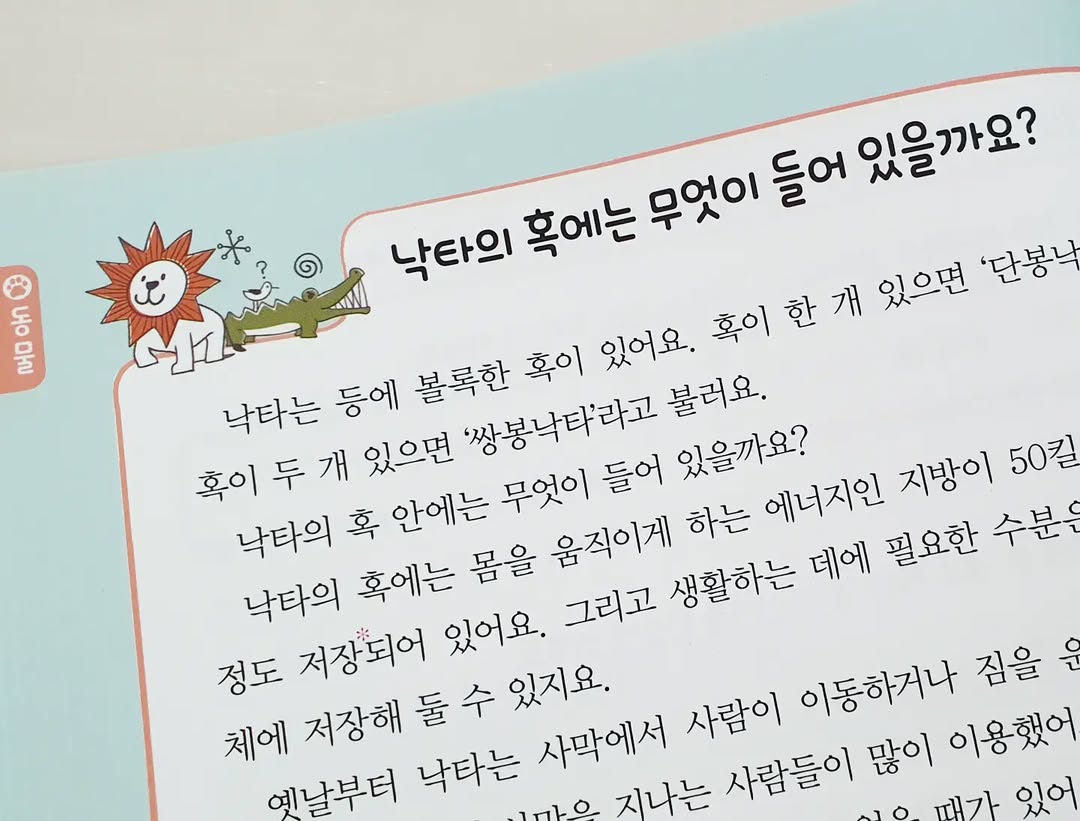 낙타의 혹에는 무엇이 들어 있을까요?
?
동물
낙타는 등에 볼록한 혹이 있어요. 혹이 한 개 있으면 ‘단봉낙
혹이 두 개 있으면 ‘쌍봉낙타’라고 불러요.
낙타의 혹 안에는 무엇이 들어 있을까요?
낙타의 혹에는 몸을 움직이게 하는 에너지인 지방이 50킬
정도 저장*되어 있어요. 그리고 생활하는 데에 필요한 수분은
체에 저장해 둘 수 있지요.
옛날부터 낙타는 사막에서 사람이 이동하거나 짐을
지나는 사람들이 많이 이용했어
때가 있어